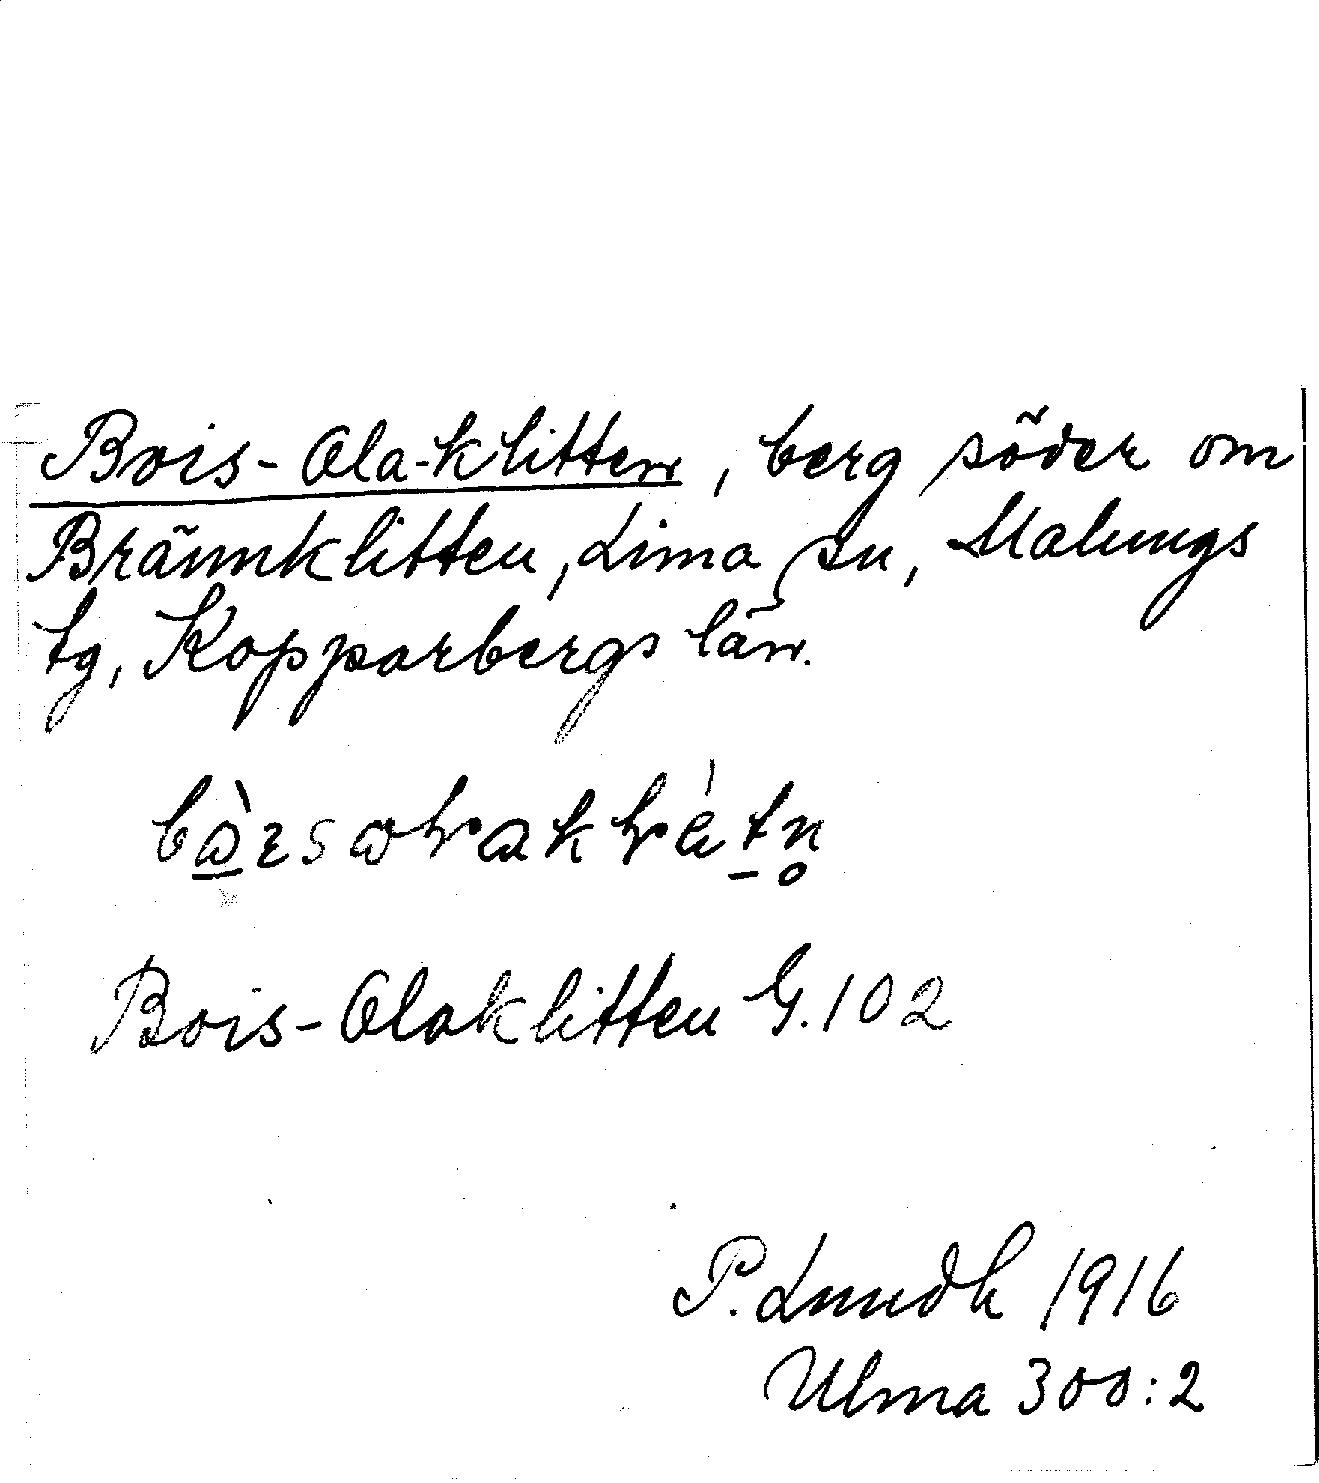 Bois-Ola-klitten, berg söder om
Brännklitten, Lima sn, Malungs
tg, Kopparbergs län.
Bois-Olaklitten G.102
P. Lundh 1916
Ulma 300:2